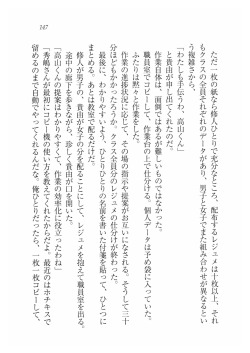 147
ただ一枚の紙なら修人ひとりで充分なところ、配布するレジュメは十枚以上、それ
もクラスの全員それぞれのデータがあって、男子と女子でまた組み合わせが異なるとい
う複雑さから、
「わたしも手伝うわ、高山くん」
と貴由が申し出てくれたのだ。
作業自体は、面倒ではあるが難しいものではなかった。
職員室でコピーして、作業台の上で仕分ける。個人データは予め袋に入っていた。
ふたりは黙々と作業をした。
作業の進捗状況に応じて、その場の指示や提案がお互いになされる。そうして三十
分ほどかかっただろうか、クラス全員分のレジュメの仕分けが終わった。
最後に、わかりやすいよう、ひとりひとりの名前を書いた付箋を貼って、ひとつに
まとめる。あとは教室で配るだけだ。
修人が男子の、貴由が女子の分を配ることにして、レジュメを抱えて職員室を出る。
途中の廊下を歩きながら、珍しく貴由が口を開いた。
「高山くんの提案はわかりやすくて、作業の効率化に役立ったわね」
「秀嶋さんが最初にコピー機の使い方を教えてくれたからだよ。最近のはホチキスで
留めるのまで自動でやってくれるんだな。俺ひとりだったら、一枚一枚コピーして、